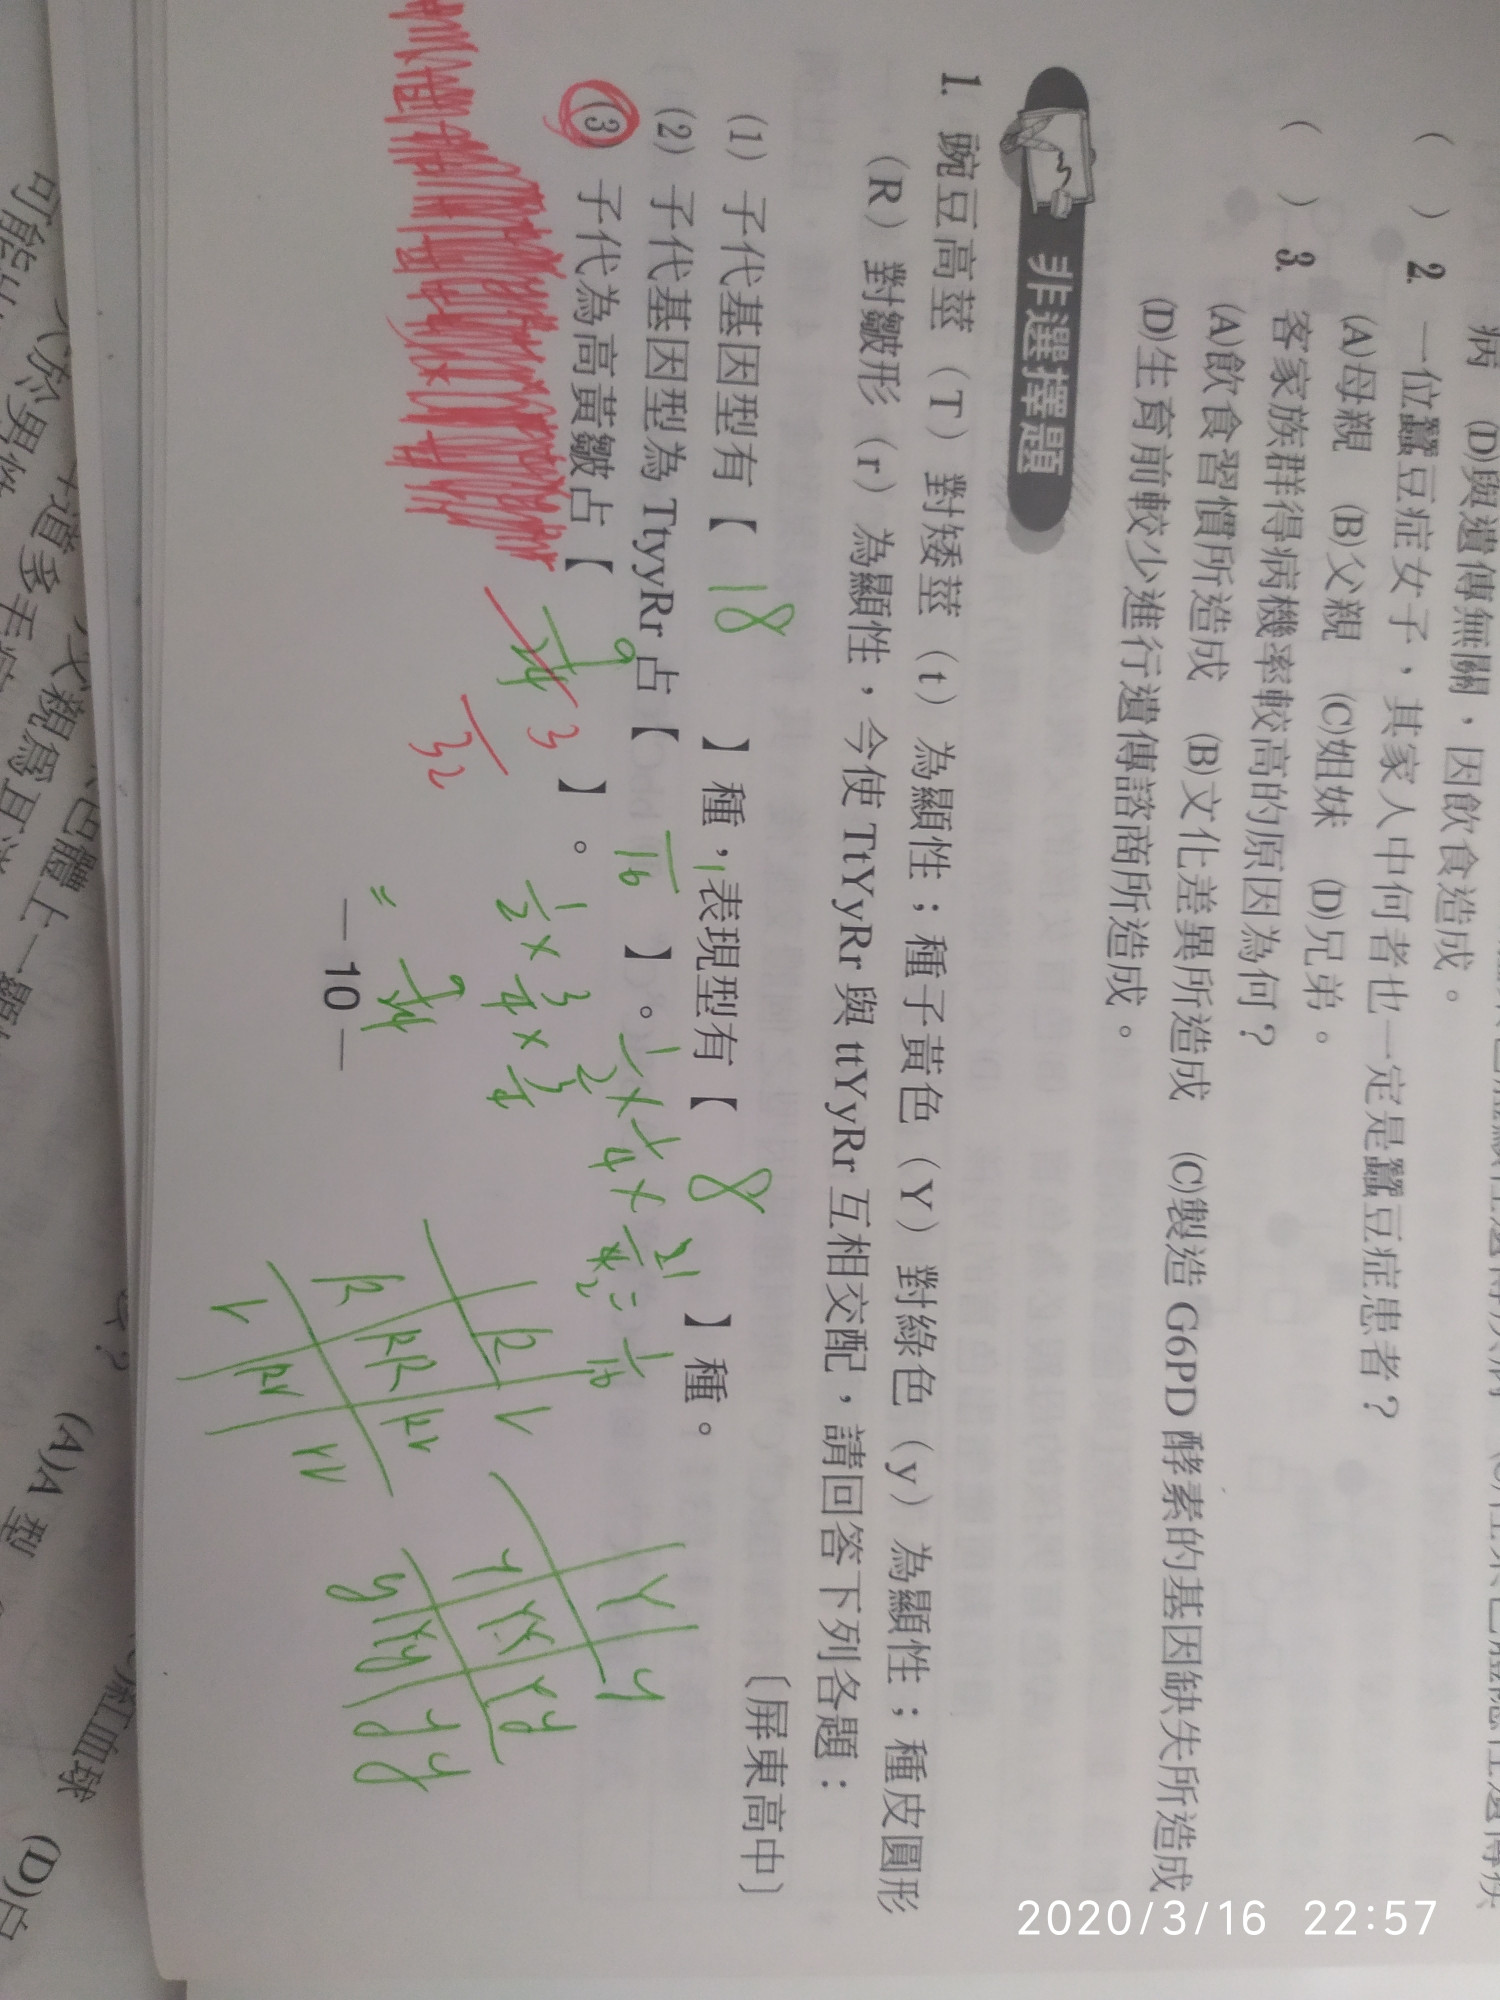 病 (D)與遺傳無關，因飲食造成。
( ) 2. 一位蠶豆症女子，其家人中何者也一定是蠶豆症患者？
(A)母親 (B)父親 (C)姐妹 (D)兄弟。
( ) 3. 客家族群得病機率較高的原因為何？
(A)飲食習慣所造成 (B)文化差異所造成 (C)製造 G6PD 酵素的基因缺失所造成
(D)生育前較少進行遺傳諮商所造成。
非選擇題
1. 豌豆高莖（T）對矮莖（t）為顯性；種子黃色（Y）對綠色（y）為顯性；種皮圓形
（R）對皺形（r）為顯性，今使 TtYyRr 與 ttYyRr 互相交配，請回答下列各題：
〔屏東高中〕
(1) 子代基因型有【 18 】種，表現型有【 8 】種。
(2) 子代基因型為 TtyyRr 占【 1/16 】。 1/2 × 1/4 × 1/2 = 1/16
(3) 子代為高黃皺占【 3/32 】。
1/2 × 3/4 ×
R r
R RR Rr
r Rr rr
Y y
Y YY Yy
y Yy yy
— 10 —
(A)A 型
紅血球
2020/3/16 22:57